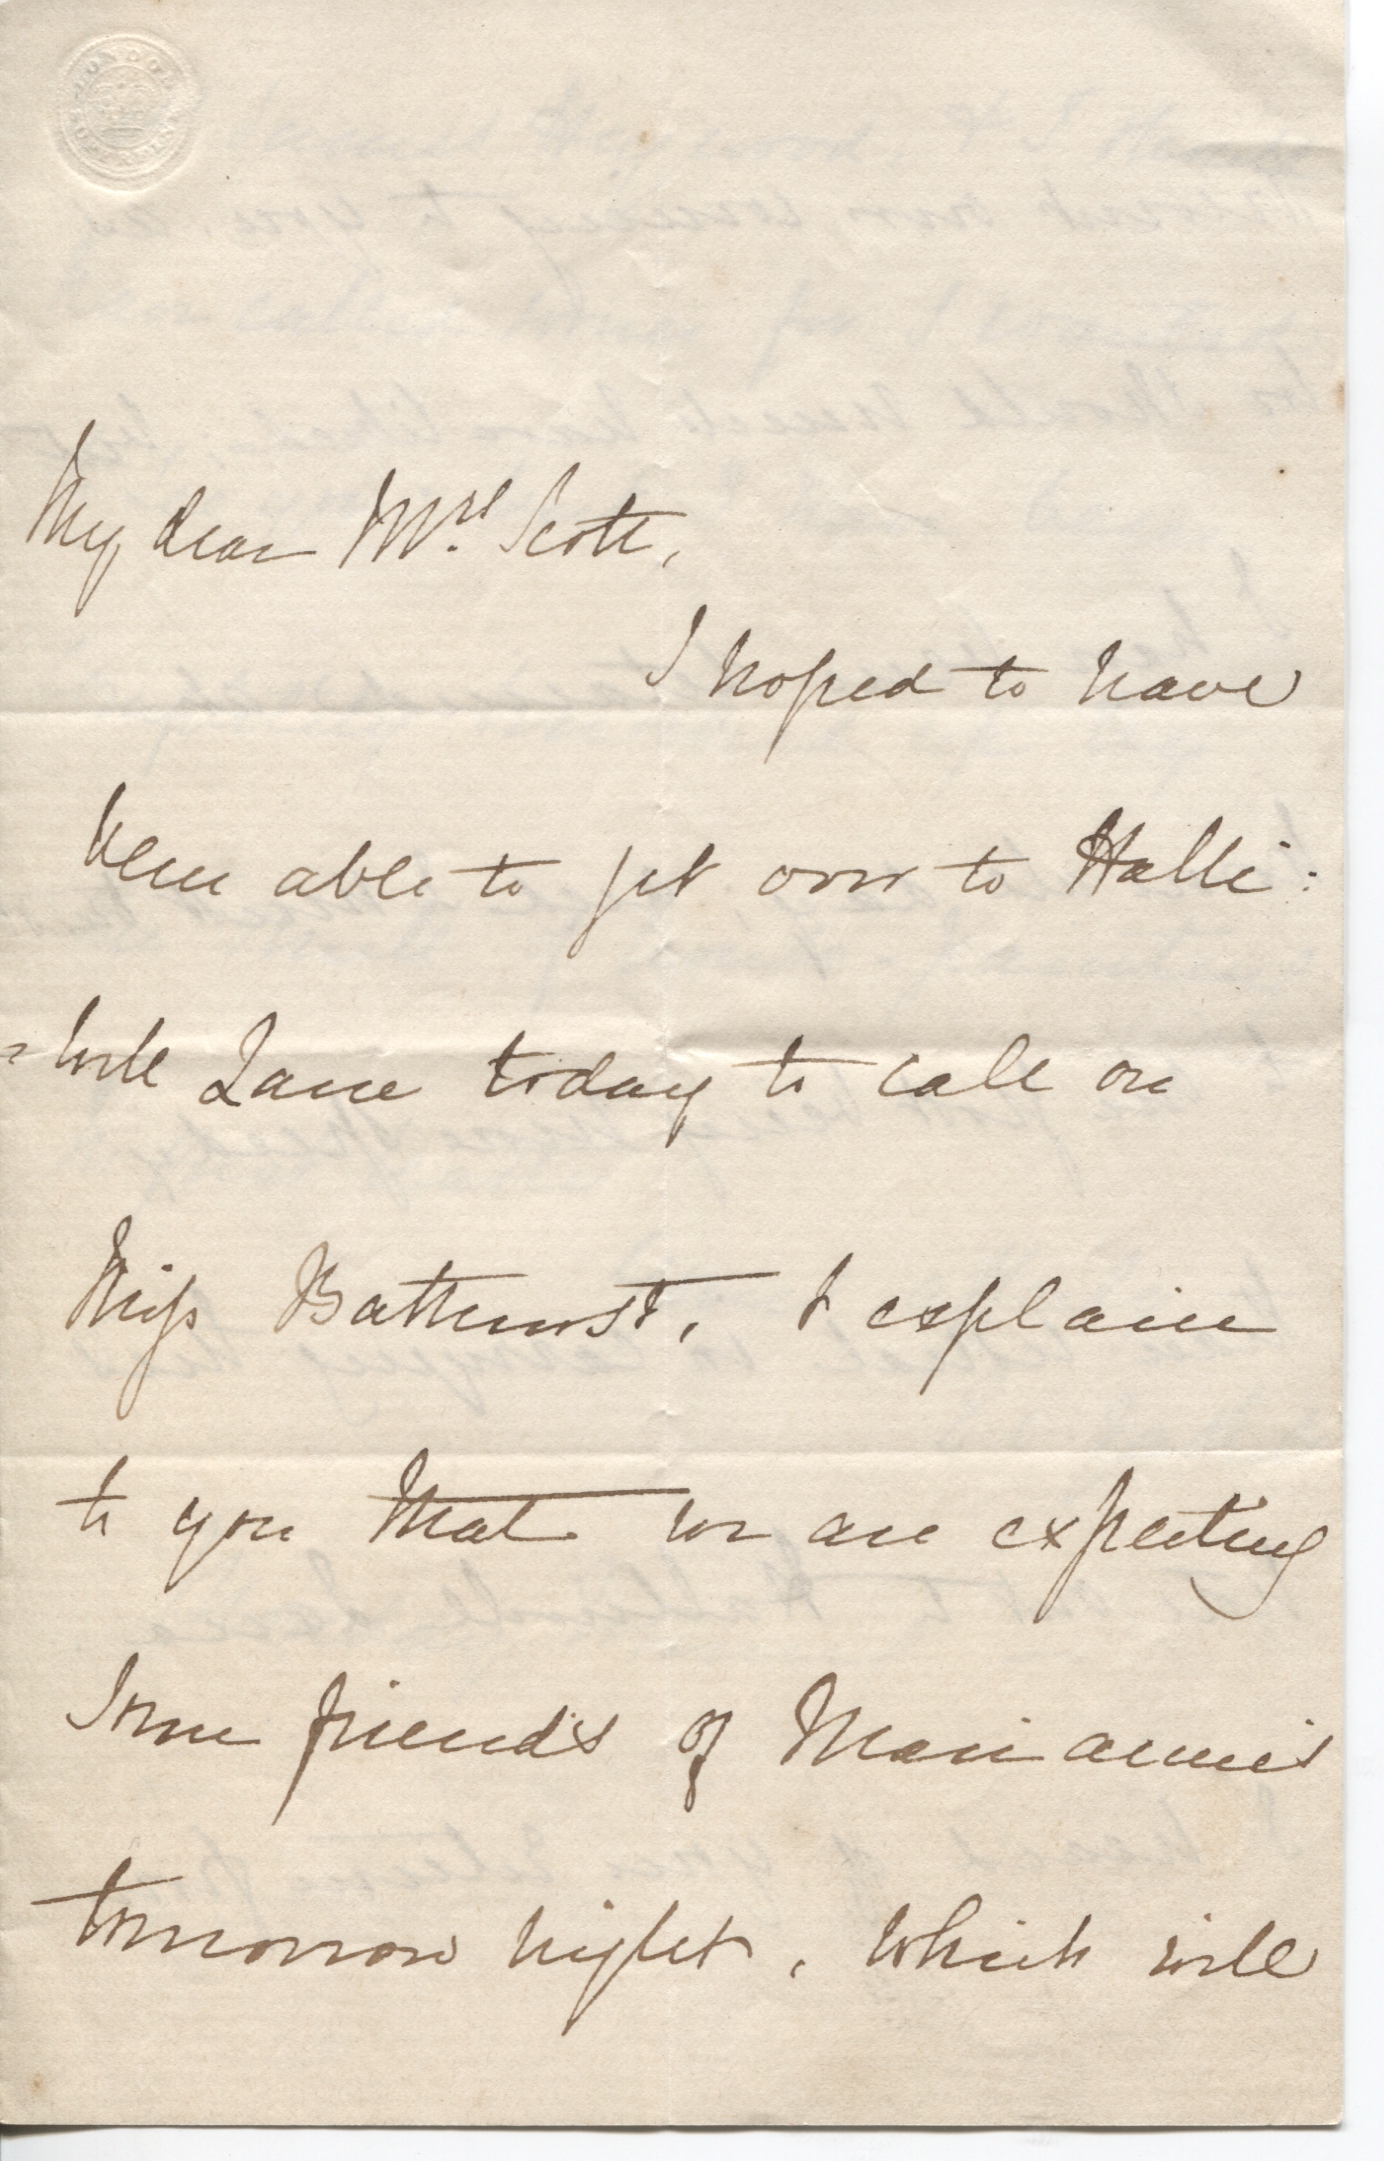 My dear Mrs. Scott,
I hoped to have
been able to get over to Halli:
=well Lane today to call on
Miss Bathurst, & explain
to you that we are expecting
some friends of Marianne's
tomorrow night, which will